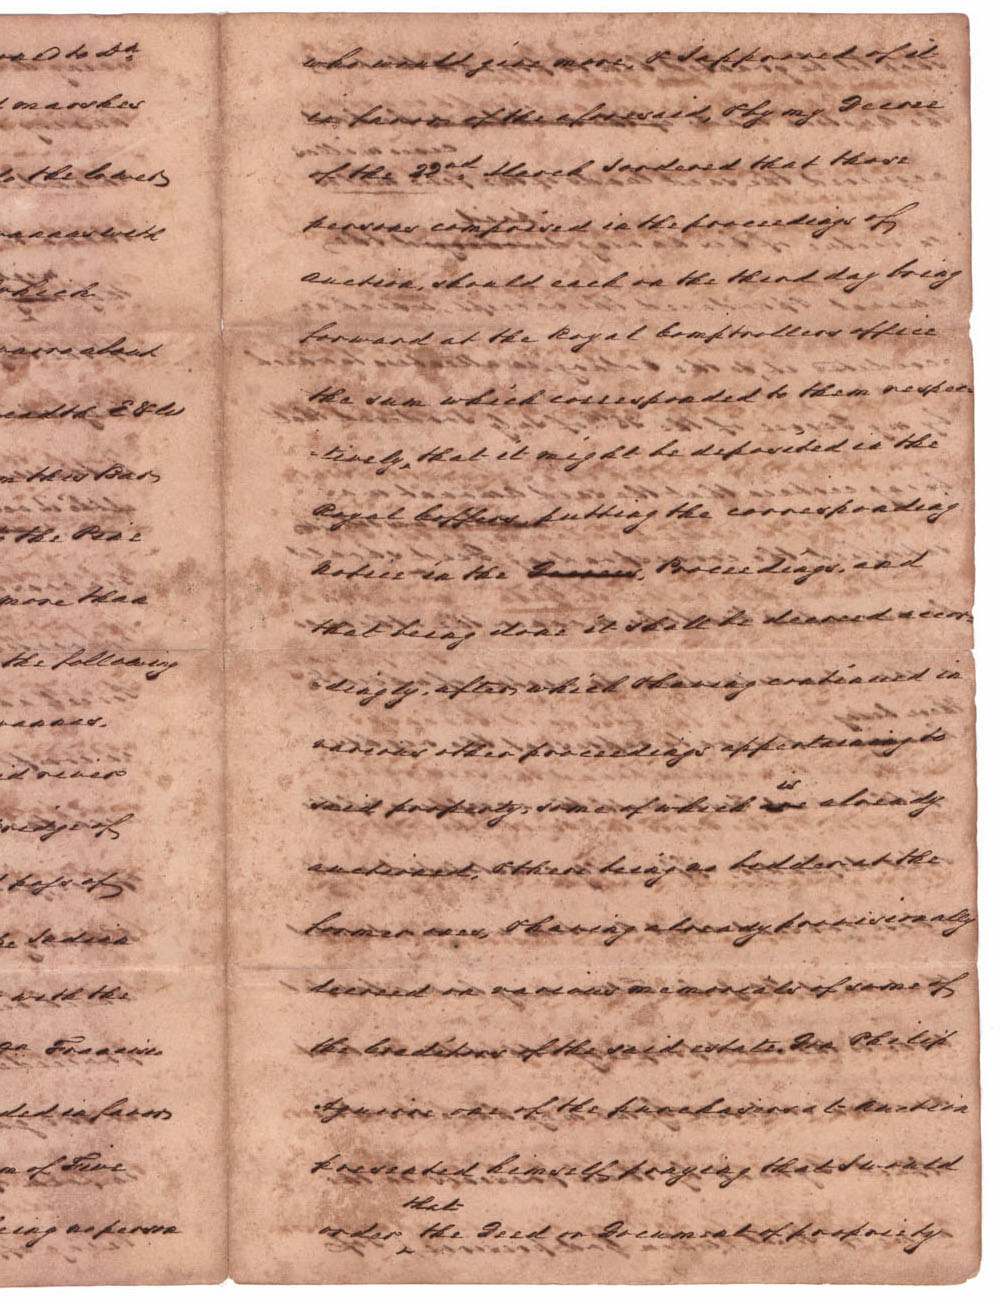 to Dn
marshes
to the lower
with
which
about
readth E & W
in this Bar
the Pine
more than
the following
vannas.
ed river
bridge of
pass of
he Indian
with the
Francisco
ded in favor
m of Five
being no person
who would give more, & I approved of it
in favor of the aforesaid, & by my Decree
of the 22nd March I ordered that those
persons comprised in the proceedings of
auction, should each on the third day bring
forward at the Royal Comptrollers office
the sum which corresponded to them respec-
-tively, that it might be deposited in the
Royal Coffers, putting the corresponding
notice in the Proceedings, and
that being done it shall be decreed accor-
-dingly, after which & having continued in
various other proceedings appertaining to
is
said property, some of which already
auctioned, & there being no bidder at the
former ones, & having already provisionally
decreed on various memorials of some of
the Creditors of the said estate, Dn Philip
Aguirre one of the purchasers at Auction
presented himself, praying that I would
that
order the Deed or Document of propriety